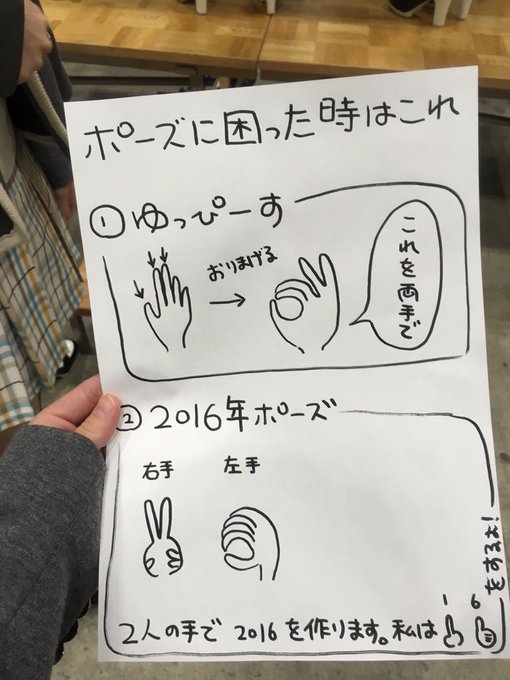 ポーズに困った時はこれ
① ゆっぴーす
おりまげる
これを両手で
② 2016年ポーズ
右手 左手
2人の手で 2016を作ります。私は
1 6
をするよ!